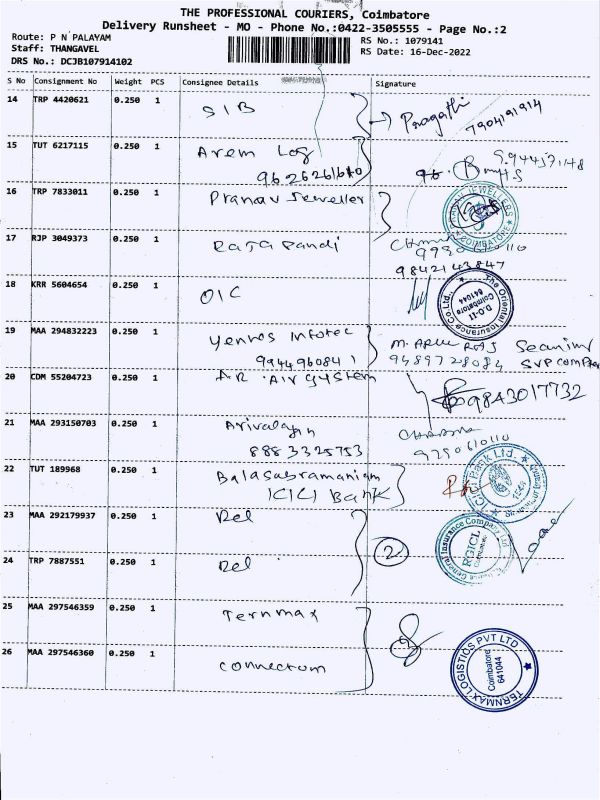 THE PROFESSIONAL COURIERS, Coimbatore
Delivery Runsheet - MO - Phone No.:0422-3505555 - Page No.:2
Route: P N PALAYAM
Staff: THANGAVEL
DRS No.: DCJB107914102
RS No.: 1079141
RS Date: 16-Dec-2022
S No Consignment No Weight PCS Consignee Details Signature
14 TRP 4420621 0.250 1 SIB Pragathi
7904191914
15 TUT 6217115 0.250 1 Arem Log
16 TRP 7833011 0.250 1 Pranav Jeweller
JEWELLERS
COIMBATORE
17 RJP 3049373 0.250 1 Raja Pandi
9842143847
18 KRR 5604654 0.250 1 OIC
The Oriental Insurance Co Ltd.
D.O-II
Coimbatore
641044
19 MAA 294832223 0.250 1 Yennos Infotec
9944960841
9489728084
20 CDM 55204723 0.250 1 AR Air System
9843017732
21 MAA 293150703 0.250 1 Arivalagan
8883325753
22 TUT 189968 0.250 1 Balasubramaniam
ICICI Bank
ICICI Bank Ltd.
23 MAA 292179937 0.250 1 Rel
2
General Insurance Company Ltd
RGICL
24 TRP 7887551 0.250 1 Rel
25 MAA 297546359 0.250 1 Ternmax
26 MAA 297546360 0.250 1 Connectum
TERNMAX LOGISTICS PVT LTD
Coimbatore
641044